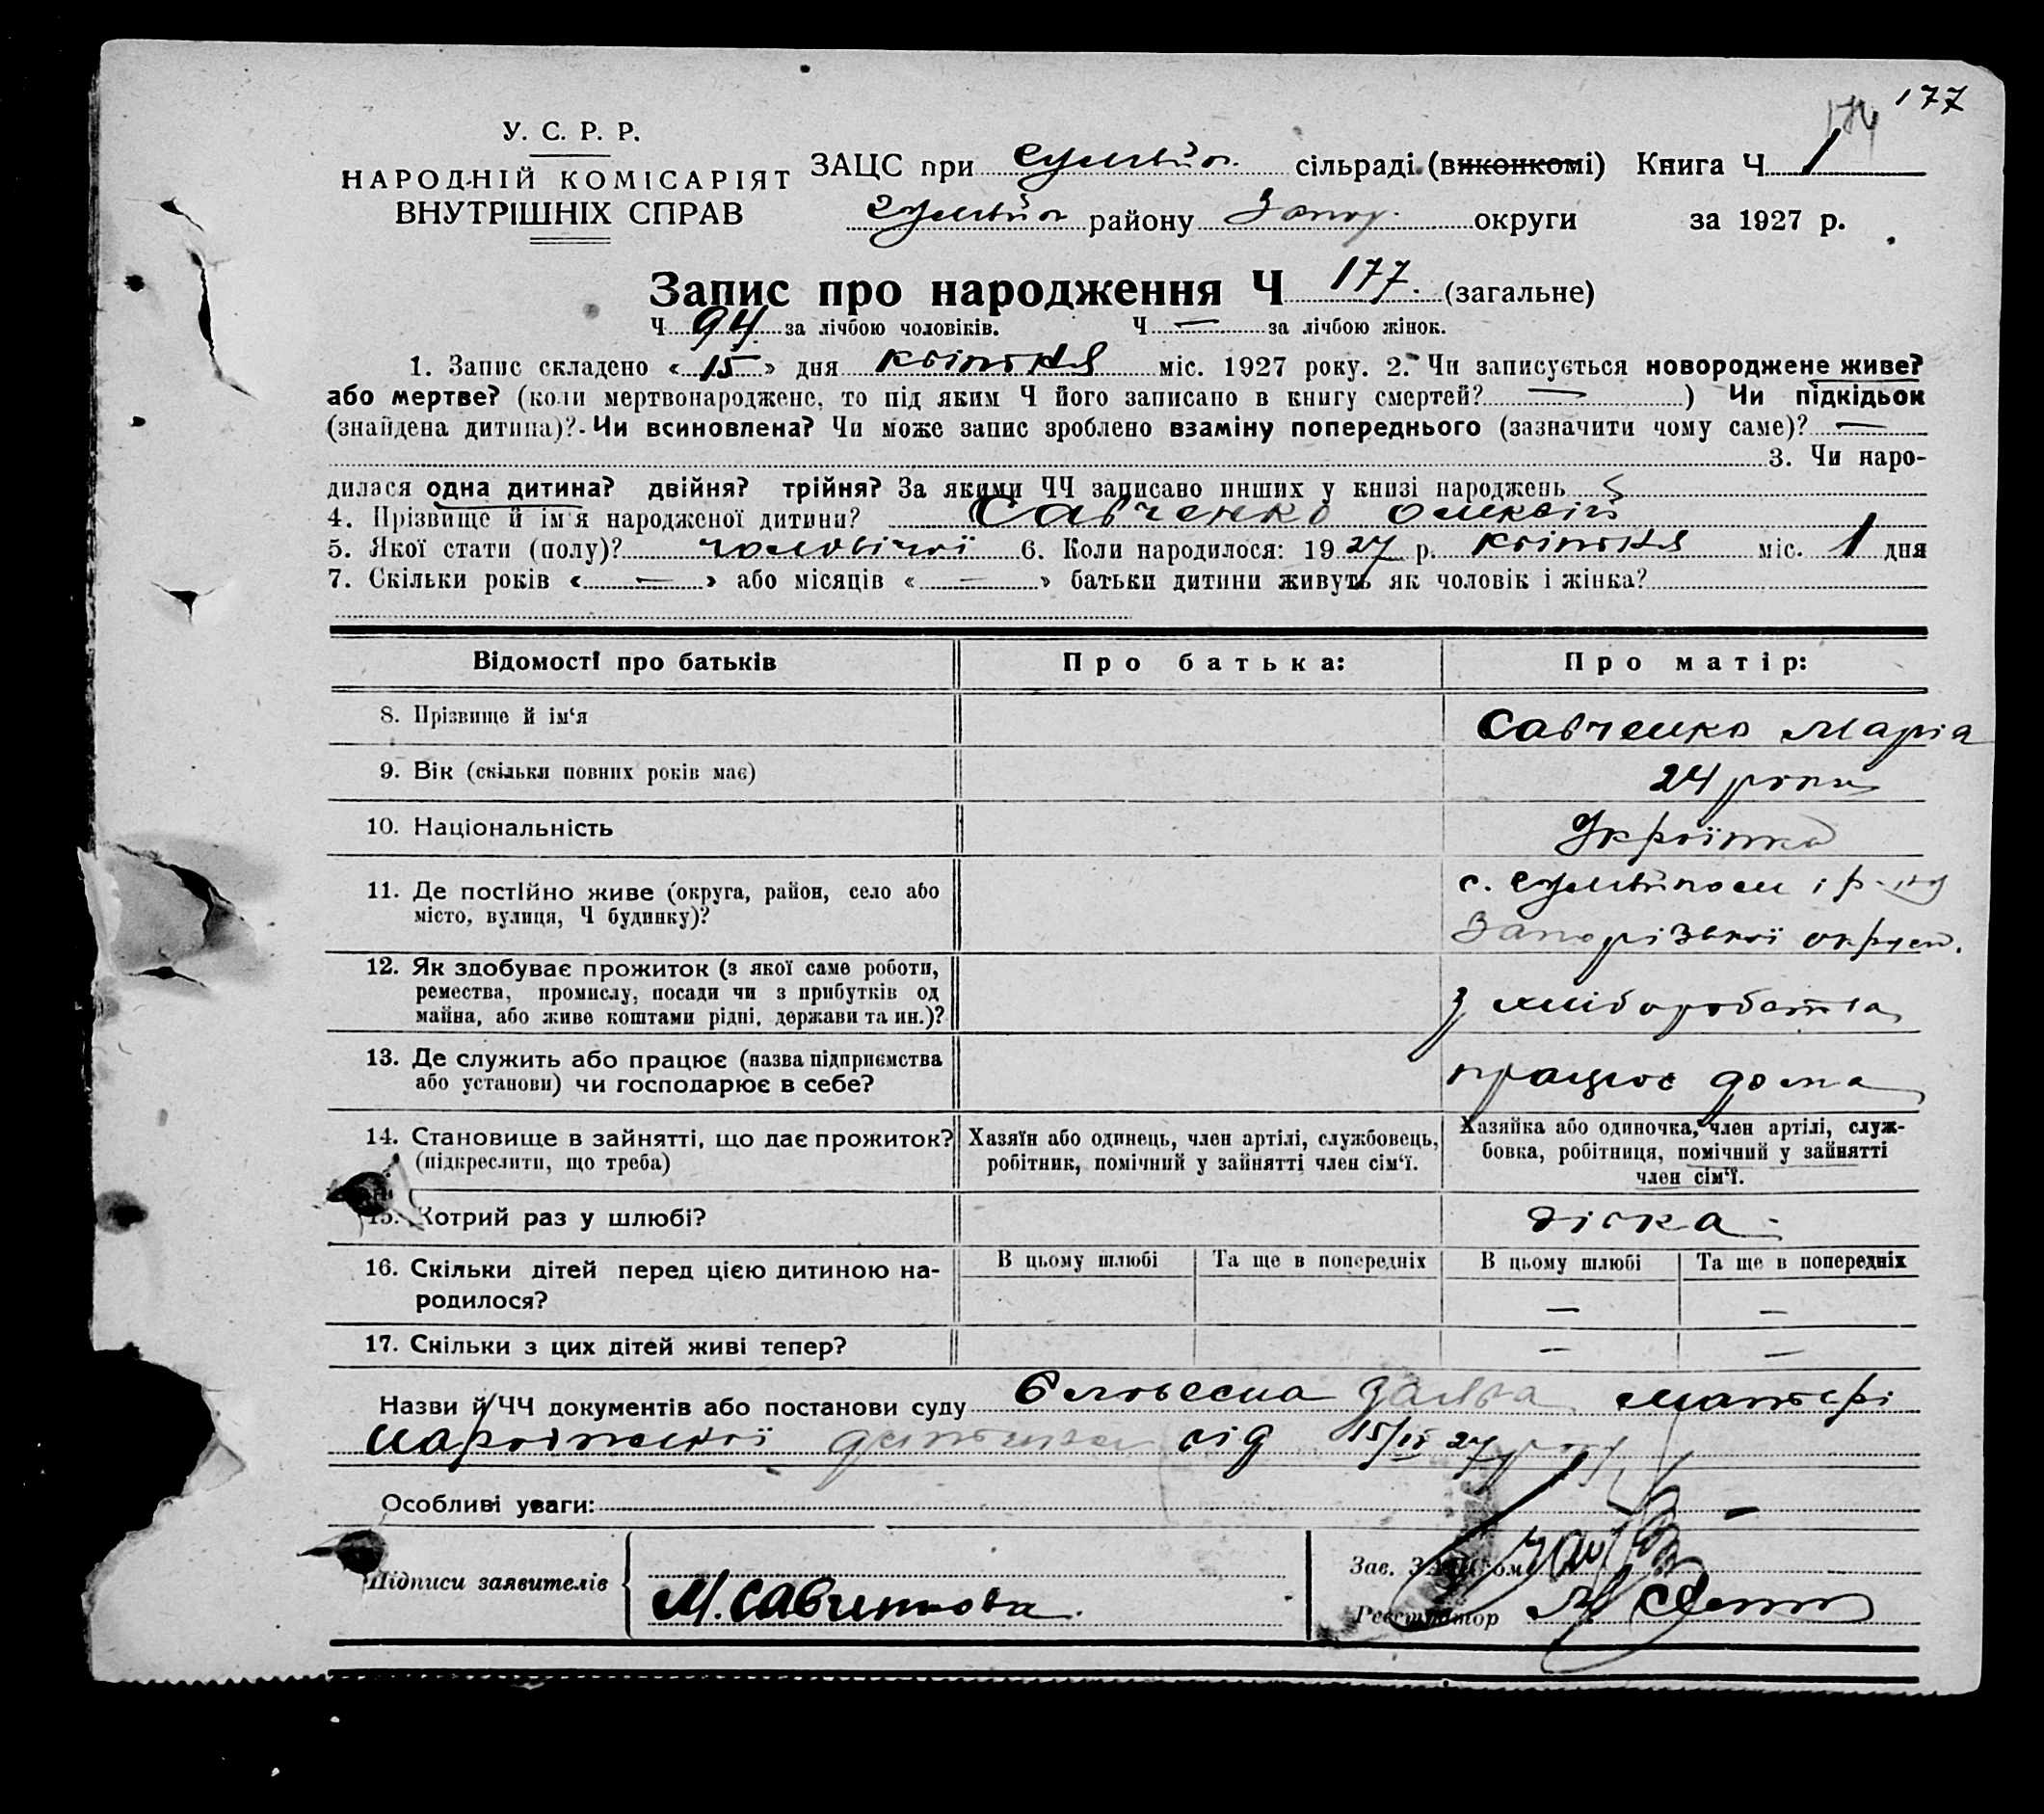 177
174
У. С. Р. Р.
НАРОДНІЙ КОМІСАРІЯТ
ВНУТРІШНІХ СПРАВ
ЗАЦС при Гуляйп. сільраді (виконкомі) Книга Ч 1
Гуляйп району Запор. округи за 1927 р.
Запис про народження Ч 177. (загальне)
Ч 94 за лічбою чоловіків. Ч — за лічбою жінок.
1. Запис складено « 15 » дня квітня міс. 1927 року. 2. Чи записується новороджене живе?
або мертве? (коли мертвонароджене, то під яким Ч його записано в книгу смертей? — ) Чи підкідьок
(знайдена дитина)? Чи всиновлена? Чи може запис зроблено взаміну попереднього (зазначити чому саме)? —
3. Чи наро-
дилася одна дитина? двійня? трійня? За якими ЧЧ записано инших у книзі народжень
4. Прізвище й ім'я народженої дитини? Савченко Олексій
5. Якої стати (полу)? чоловічої 6. Коли народилося: 1927 р. квітня міс. 1 дня
7. Скільки років « — » або місяців « — » батьки дитини живуть як чоловік і жінка?
Відомості про батьків Про батька: Про матір:
8. Прізвище й ім'я Савченко Марія
9. Вік (скільки повних років має) 24 роки
10. Національність Українка
11. Де постійно живе (округа, район, село або
місто, вулиця, Ч будинку)?
с. Гуляйполе і р-ну
Запорізької округи.
12. Як здобуває прожиток (з якої саме роботи,
ремества, промислу, посади чи з прибутків од
майна, або живе коштами рідні, держави та ин.)?
з хліборобства
13. Де служить або працює (назва підприємства
або установи) чи господарює в себе?
працює дома
14. Становище в зайнятті, що дає прожиток?
(підкреслити, що треба)
Хазяїн або одинець, член артілі, службовець,
робітник, помічний у зайнятті член сім'ї.
Хазяйка або одиночка, член артілі, служ-
бовка, робітниця, помічний у зайнятті
член сім'ї.
15. Котрий раз у шлюбі? дівка
16. Скільки дітей перед цією дитиною на-
родилося?
В цьому шлюбі Та ще в попередніх В цьому шлюбі Та ще в попередніх
— —
17. Скільки з цих дітей живі тепер? — —
Назви й ЧЧ документів або постанови суду Словесна заява матері
народженої дитини від 15/IV 27 року
Особливі уваги: —
Підписи заявителів М. Савченкова.
Зав. ЗАЦС'ом
Реєстратор